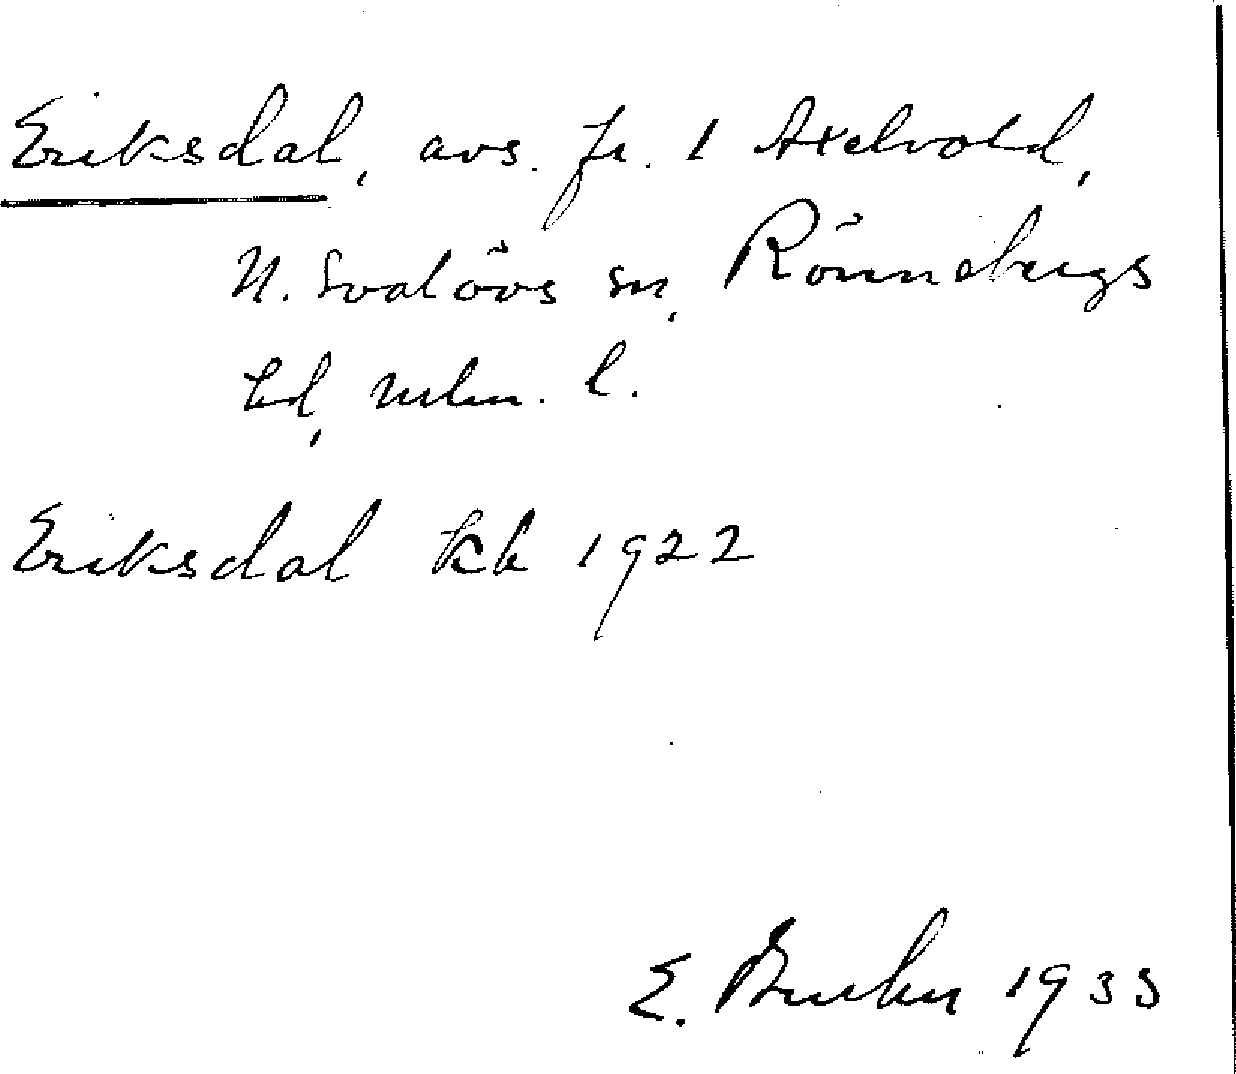 Eriksdal, avs. fr. 1 Axelvold,
N. Svalövs sn, Rönnebergs
hd, Mlm. l.
Eriksdal kk 1922
E. 1933